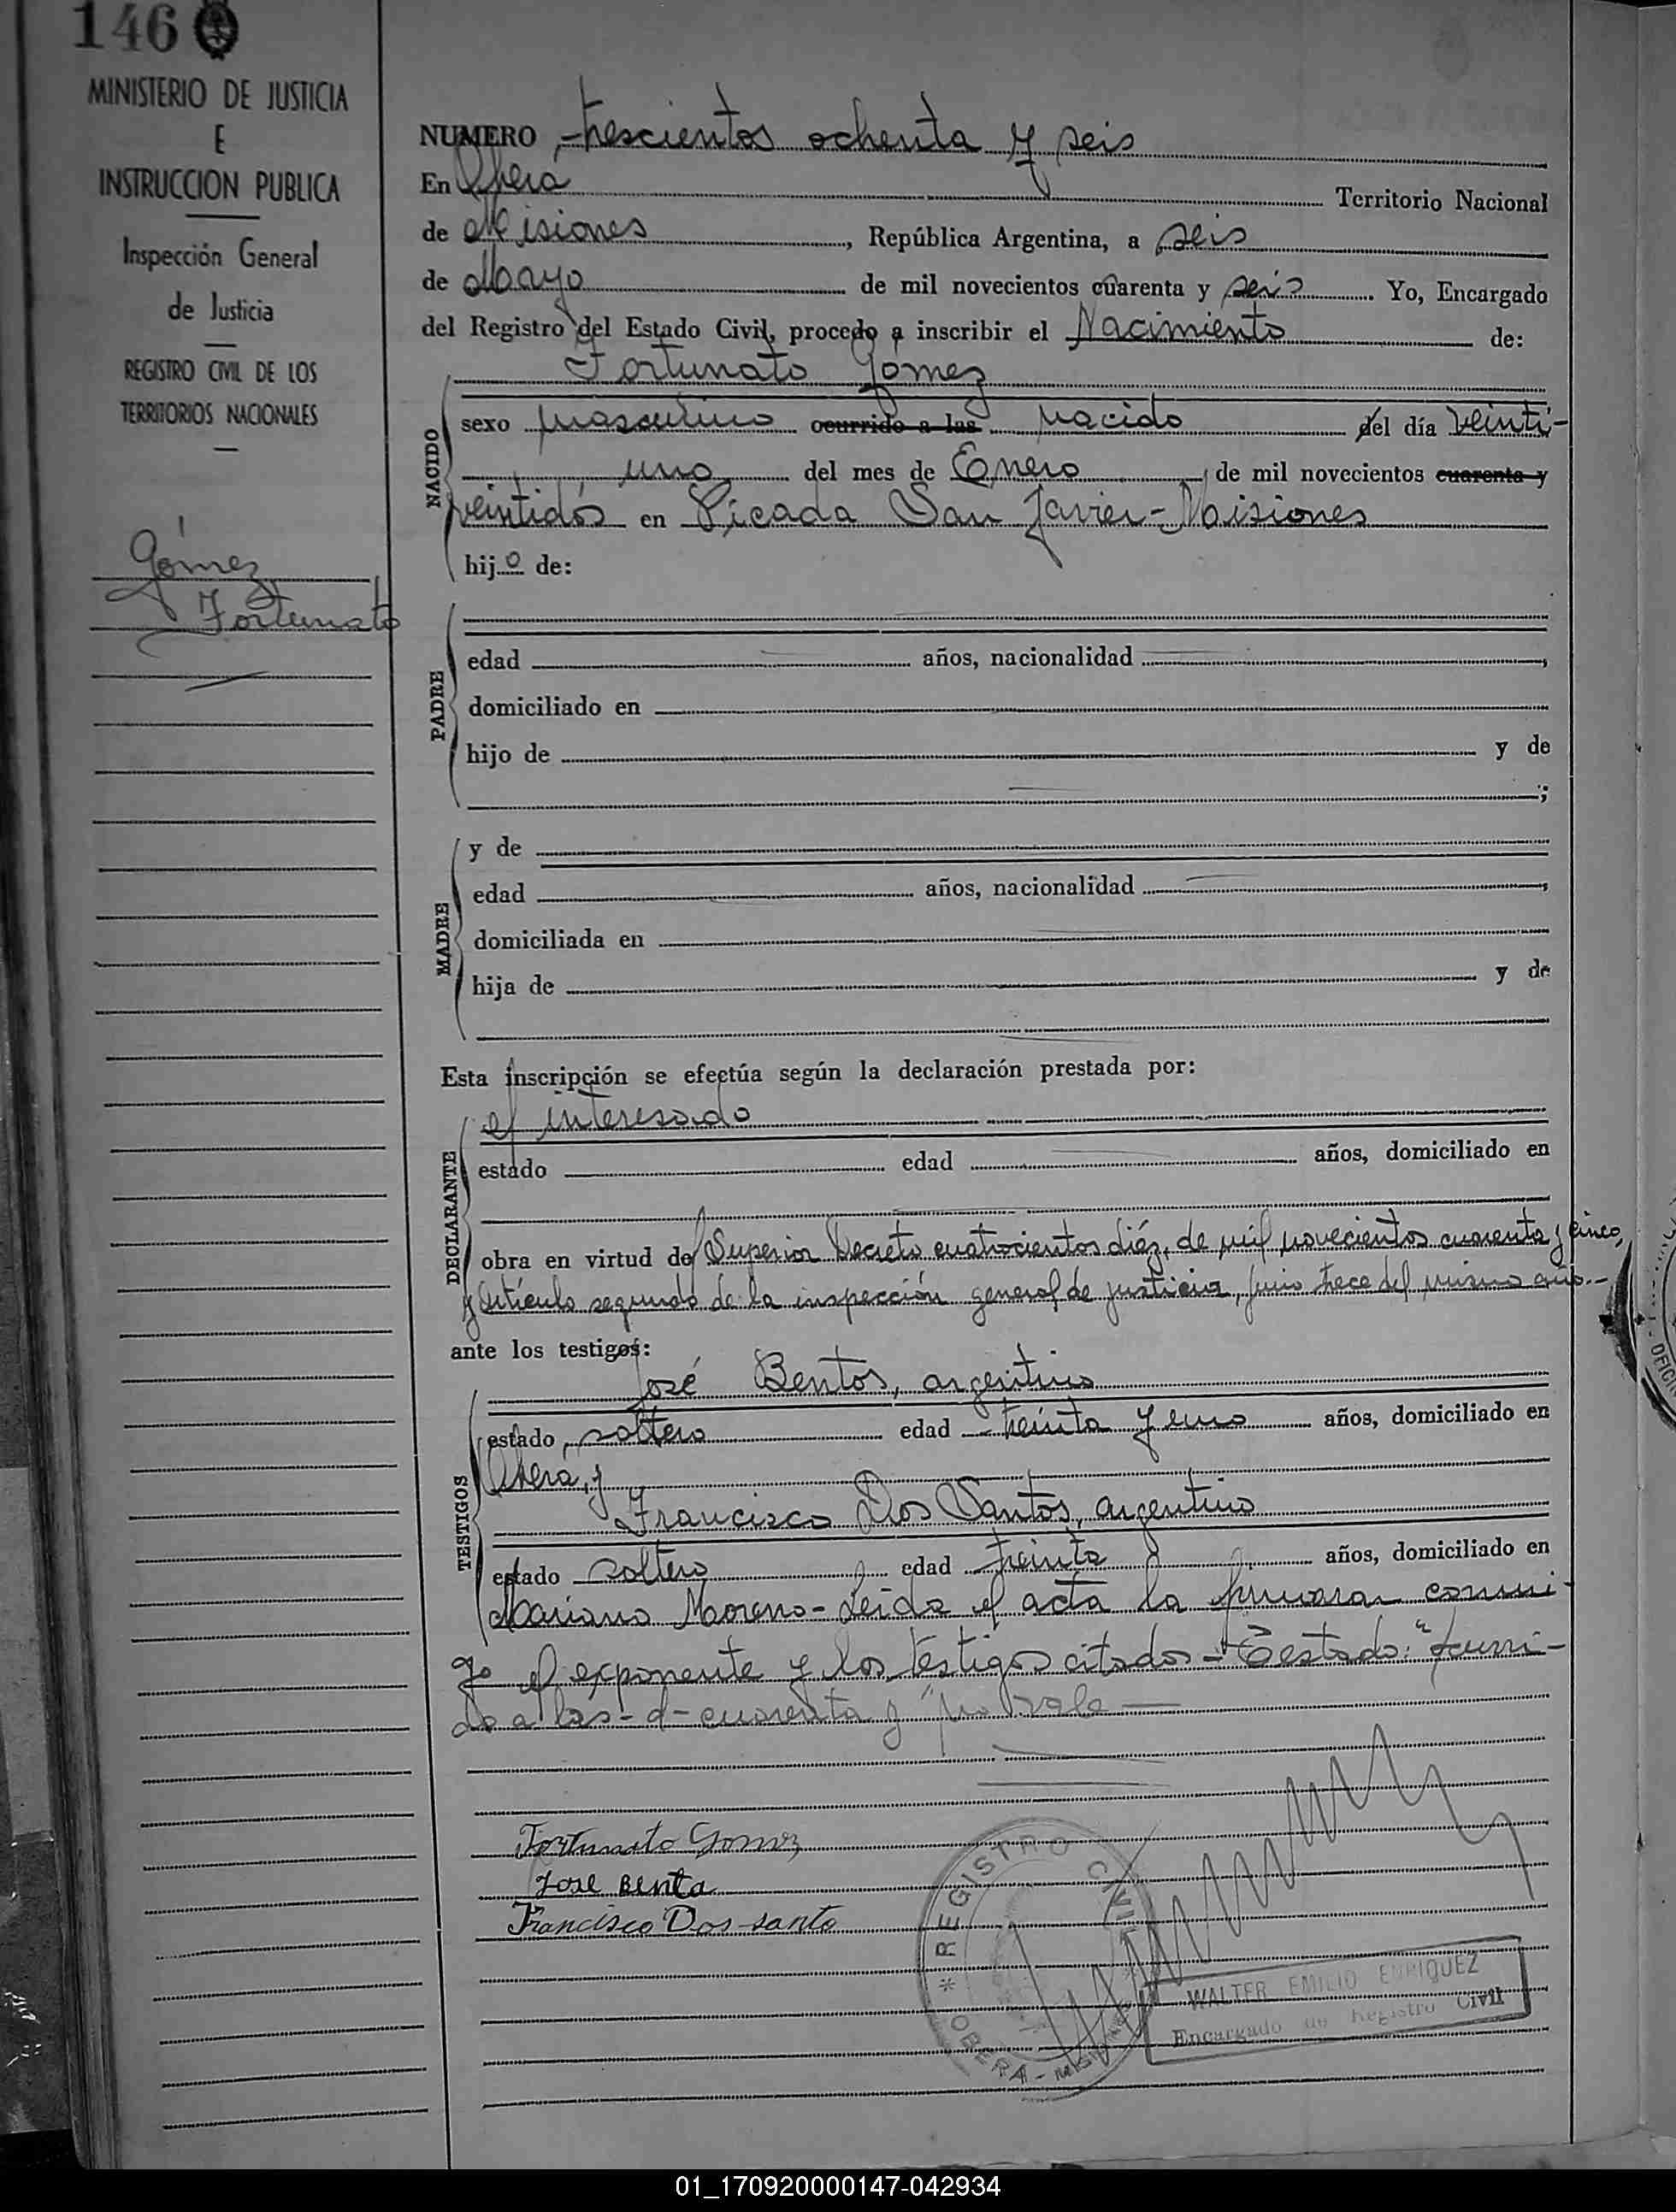 146
MINISTERIO DE JUSTICIA
E
INSTRUCCION PUBLICA
Inspección General
de Justicia
REGISTRO CIVIL DE LOS
TERRITORIOS NACIONALES
Gómez
Fortunato
NUMERO trescientos ochenta y seis
En Obera Territorio Nacional
de Misiones, República Argentina, a seis
de Mayo de mil novecientos cuarenta y seis. Yo, Encargado
del Registro del Estado Civil, procedo a inscribir el Nacimiento de:
Fortunato Gomez
NACIDO
sexo masculino ocurrido a las nacido del día veinti-
uno del mes de Enero, de mil novecientos cuarenta y
veintidós en Picada San Javier-Misiones
hijo de:
PADRE
edad años, nacionalidad ,
domiciliado en
hijo de y de
;
MADRE
y de
edad años, nacionalidad ,
domiciliada en
hija de y de
Esta inscripción se efectúa según la declaración prestada por:
DECLARANTE
el interesado
estado edad años, domiciliado en
obra en virtud del Superior Decreto cuatrocientos diéz, de mil novecientos cuarenta y cinco,
y Artículo segundo de la inspección general de justicia, junio trece del mismo año.-
ante los testigos:
TESTIGOS
José Bentos, argentino
estado soltero edad treinta y uno años, domiciliado en
Obera, y
Francisco Dos Santos, argentino
estado soltero edad treinta años, domiciliado en
Mariano Moreno-Leida el acta la firmaran conmi-
go el exponente y los testigos citados-Testado: "ocurri-
do a las-d-cuarenta y" no vale
Fortunato Gomez
Jose Benta
Francisco Dos-santo
* REGISTRO CIVIL *
OBERA - MISIONES
WALTER EMILIO ENRIQUEZ
Encargado de Registro Civil
OFICI
01_170920000147-042934